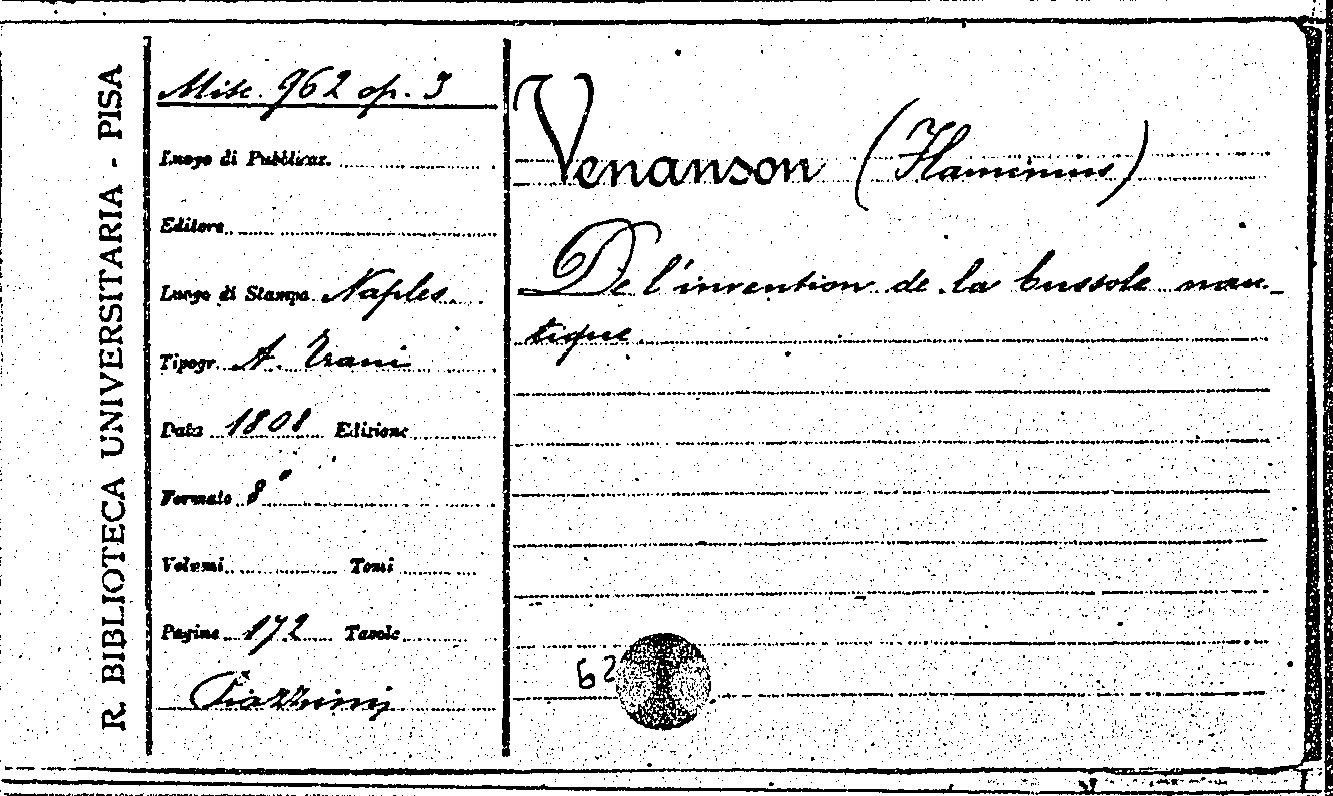 R. BIBLIOTECA UNIVERSITARIA - PISA
Misc. 962 op. 3
Luogo di Pubblicaz.
Editore
Luogo di Stampa Naples
Tipogr. A. Trani
Data 1808 Edizione
Formato 8°
Volumi Tomi
Pagine 172 Tavole
Piazzinij
Venanson (Flaminius)
De l'invention de la bussole nau-
tique.
62